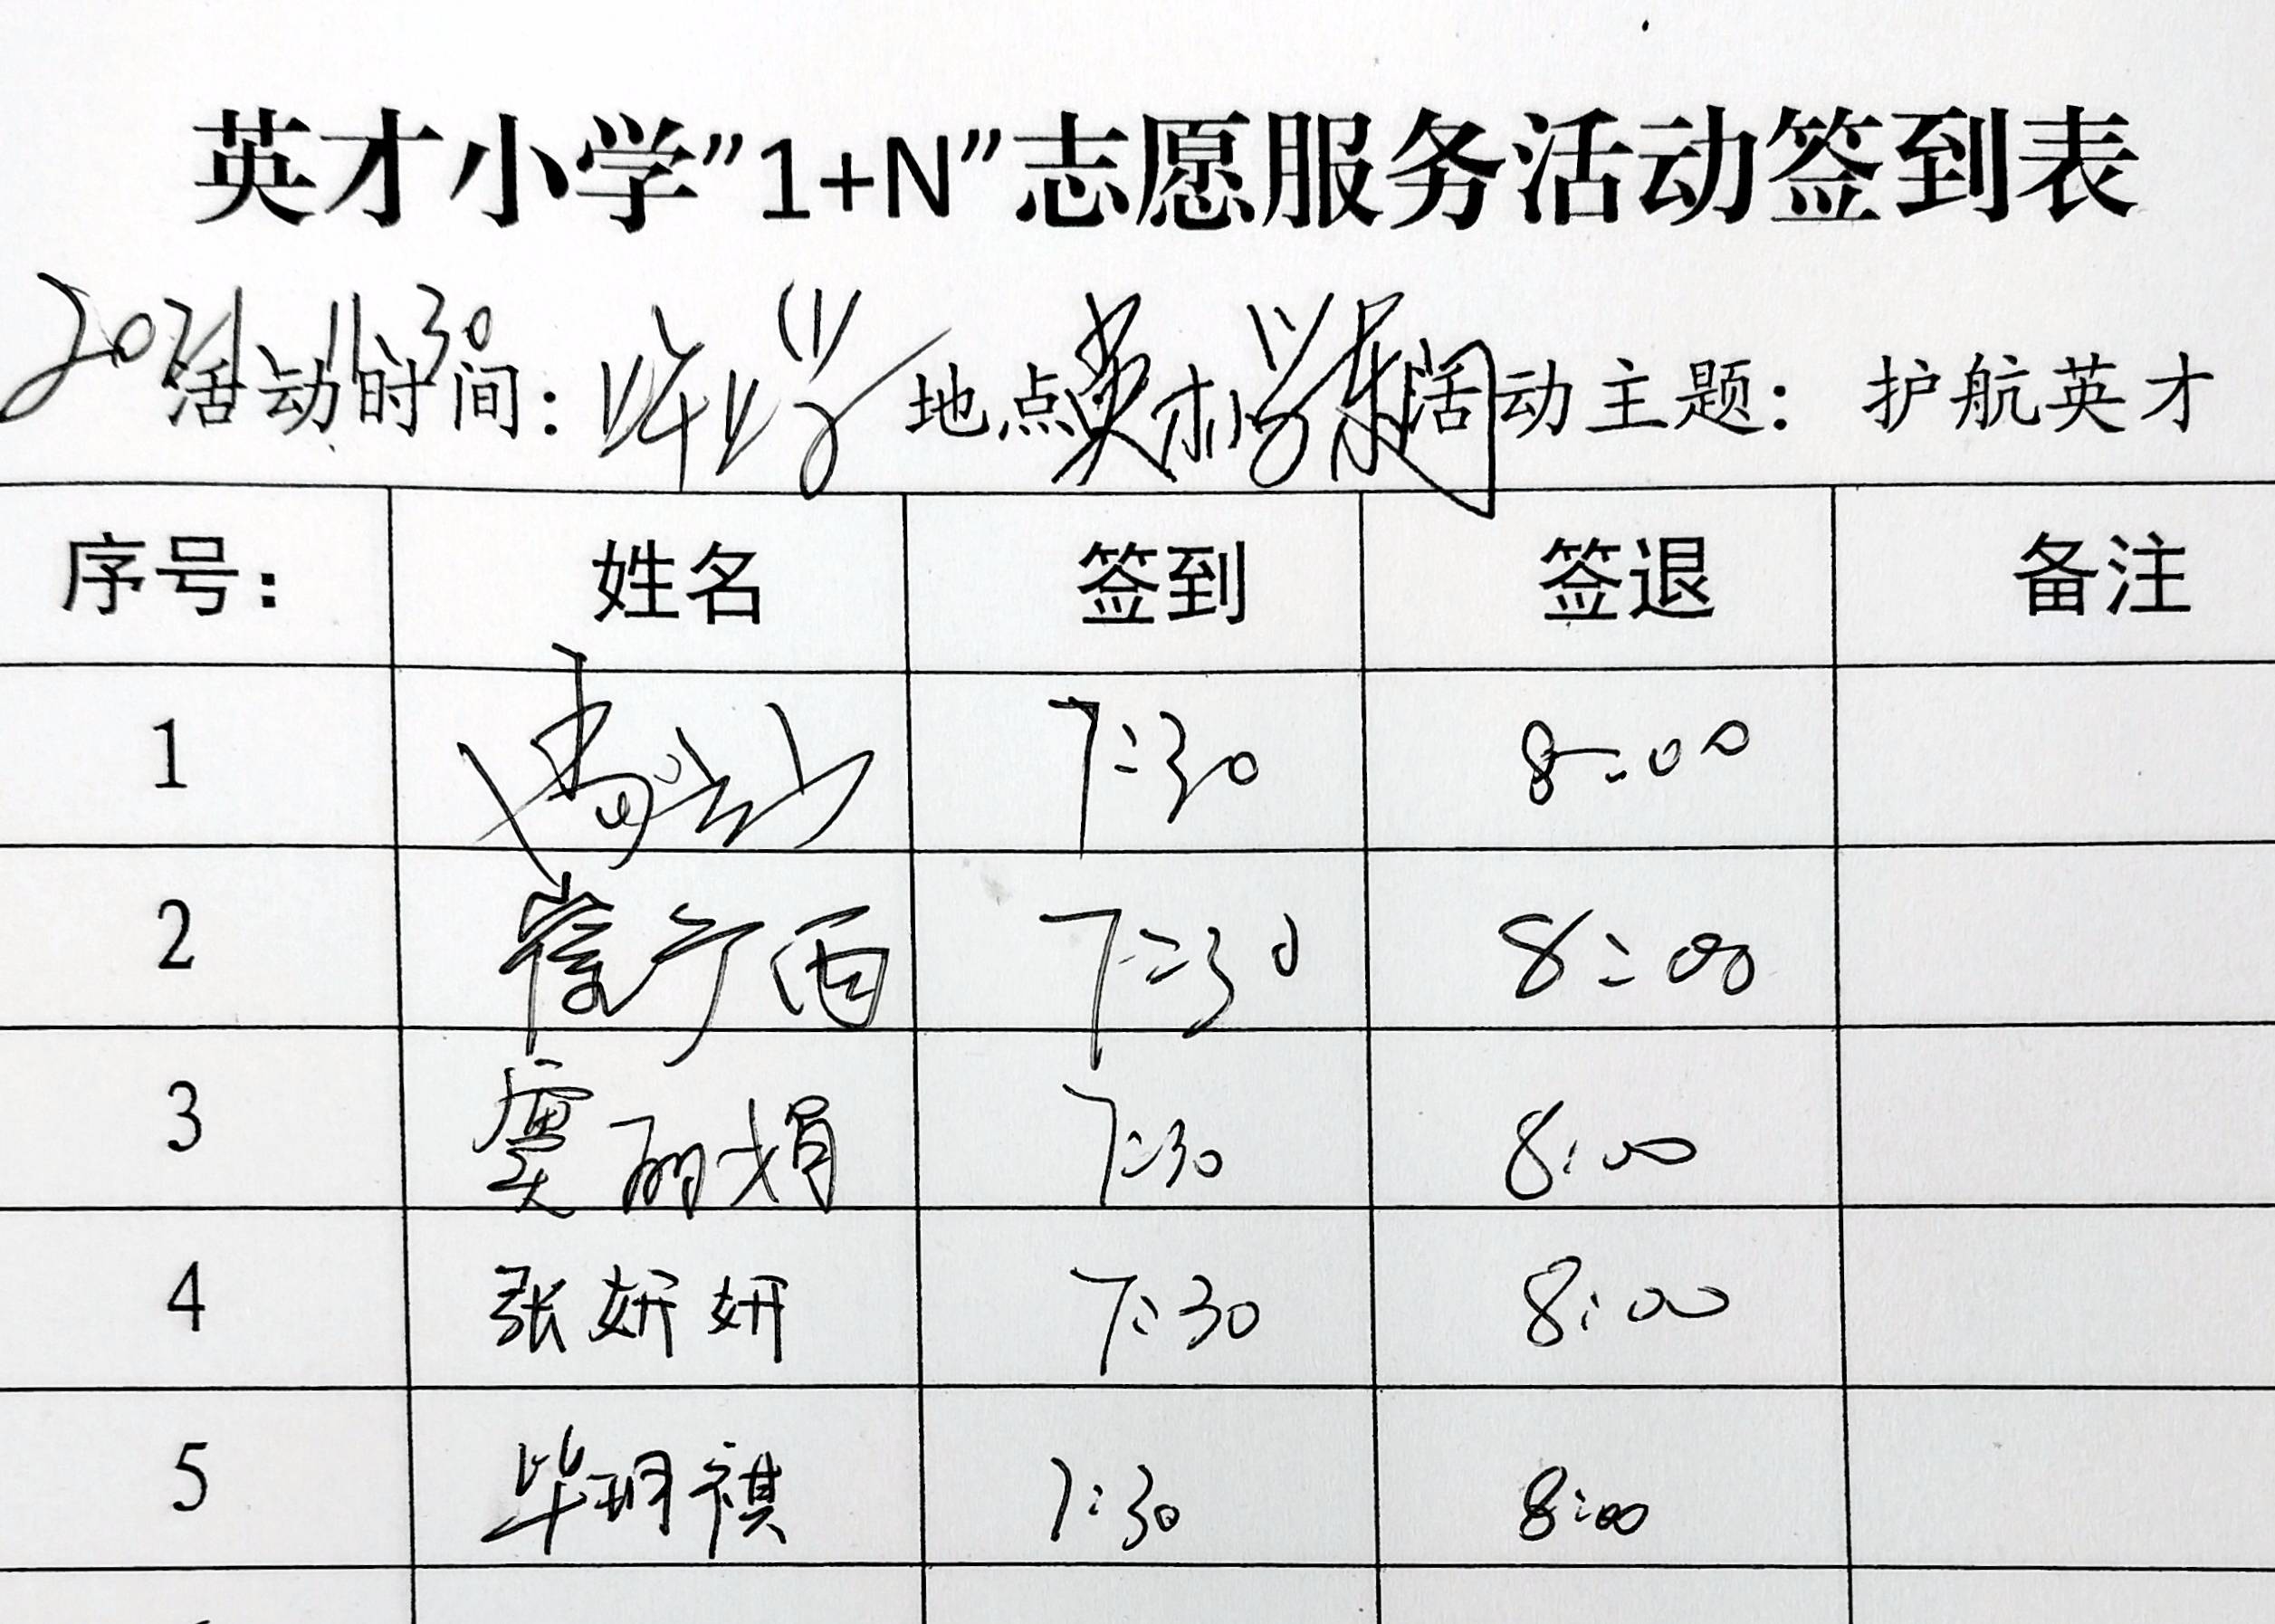 英才小学”1+N”志愿服务活动签到表
活动时间： 地点 英才小学东门 活动主题： 护航英才
序号： 姓名 签到 签退 备注
1 7:30 8:00
2 7:30 8:00
3 窦丽娟 7:30 8:00
4 张妍妍 7:30 8:00
5 毕玥祺 7:30 8:00